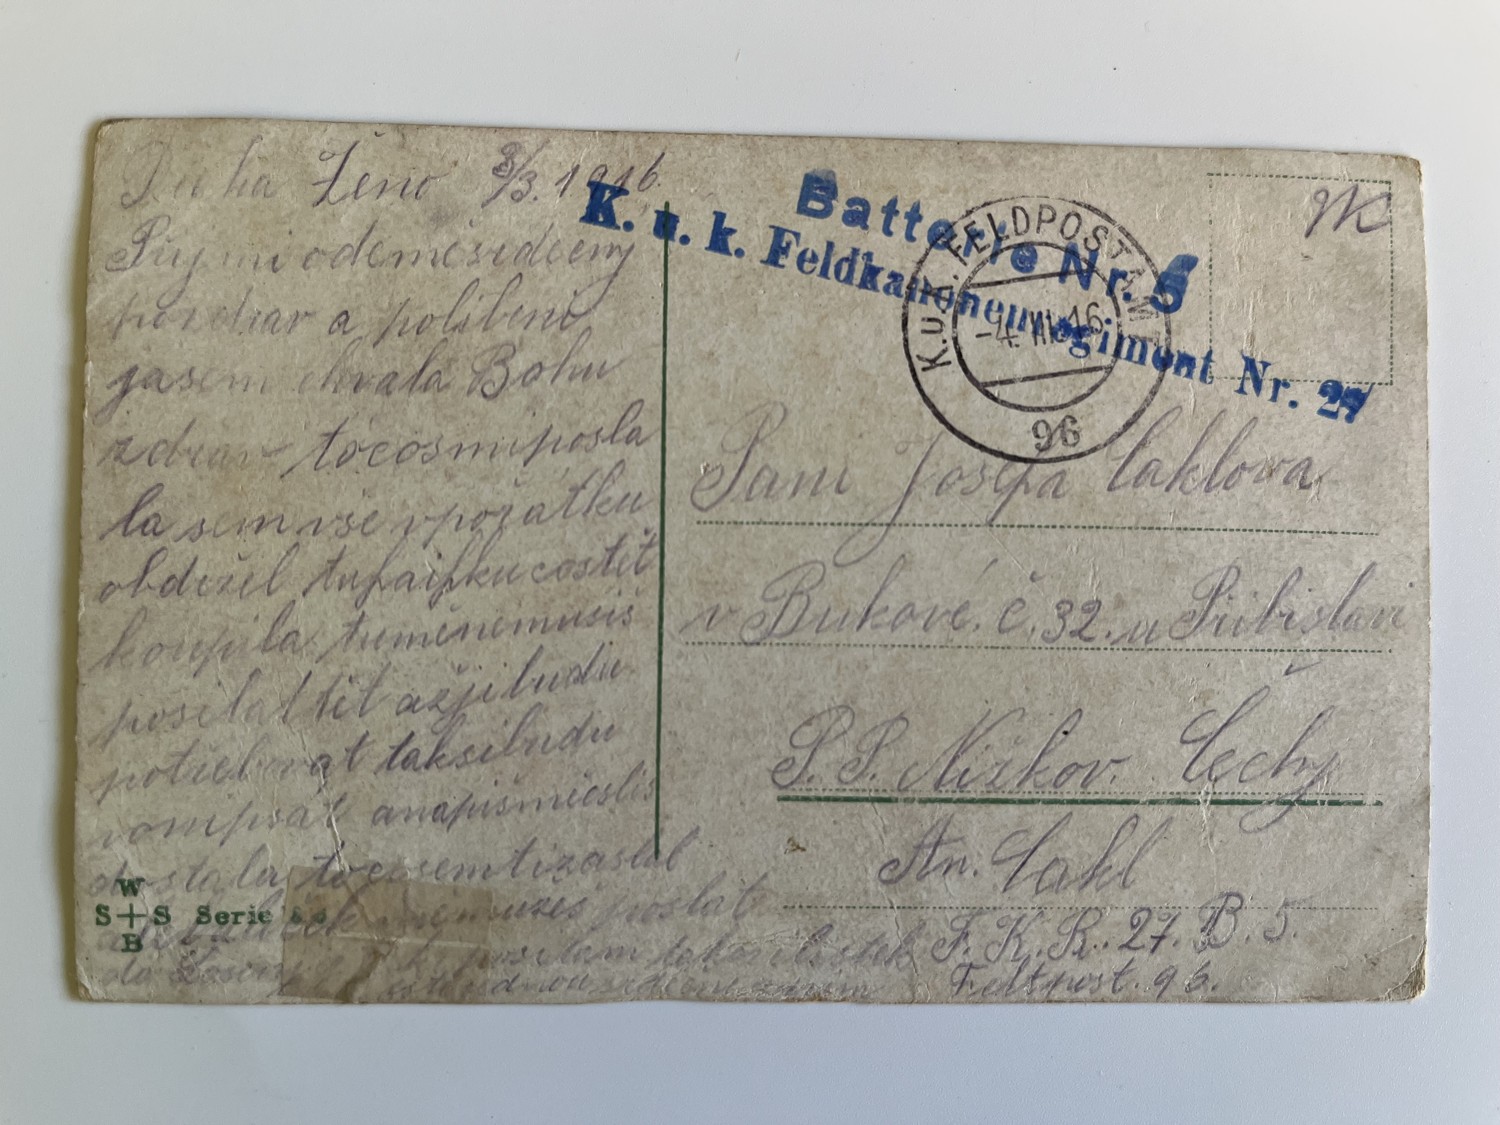 Druha Ženo 8/3. 1916.
Přijmi odemě srdečny
pozdrav a polibeni
jasem chvala Bohu
zdrav tocosmiposla
la sem vše vpořatku
obdržel tufaifku costit
koupila tuměnemusiš
posilat tět ažjibudu
potřebovat taksibudu
ronipsat anapišmiesliš
dostala tocosemtizaslal
nemužeš poslat
posilam
Batterie Nr. 5
K. u. k. Feldkanonenregiment Nr. 27
K. u. K. FELDPOSTAMT
-4. III. 16
96
Pani Josefa Caklova
v Bukové. č. 32. u Přibislavi
P. P. Nižkov. Čechy
An. Cakl
F. K. R. 27. B. 5.
Feltpost. 96.
W
S+S Serie
B